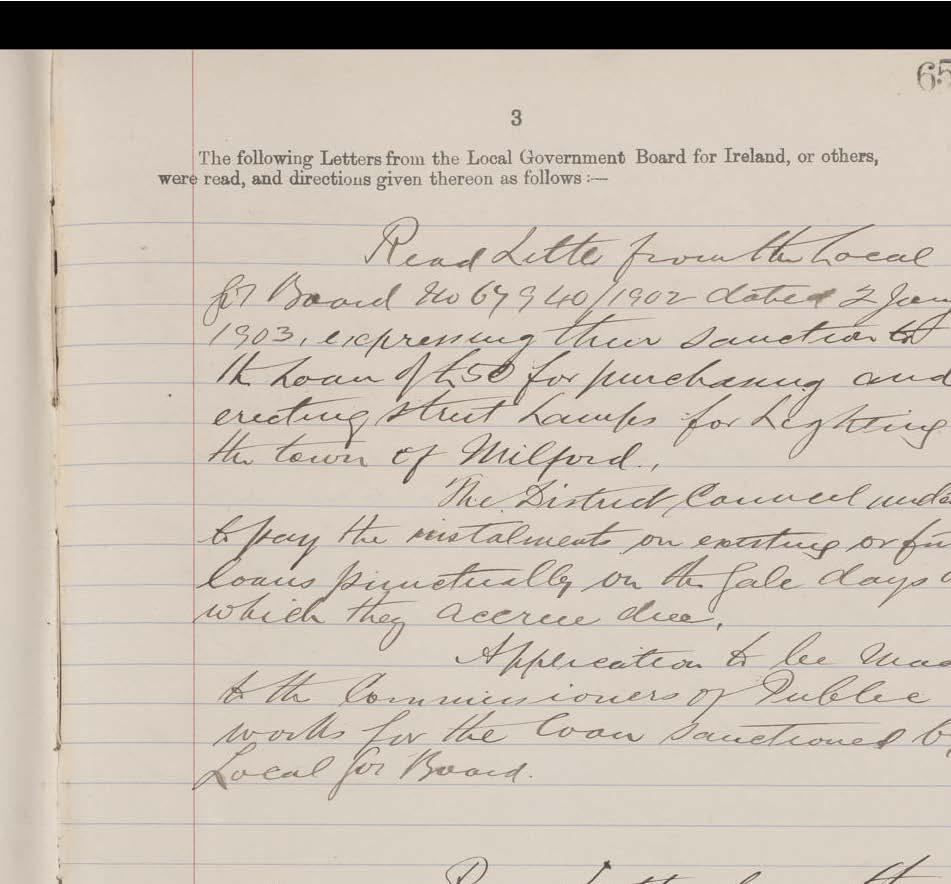 65
3
The following Letters from the Local Government Board for Ireland, or others,
were read, and directions given thereon as follows :—
Read Letter from the Local
Gov Board No 67940/1902 dated 2 Jany
1903, expressing their sanction to
the Loan of £50 for purchasing and
erecting street Lamps for Lighting
the town of Milford.,
The District Council
to pay the instalments on existing or
loans punctually on the gale days
which they accrue due.
Application to be
to the Commissioners of Public
works for the loan sanctioned
Local Gov Board.